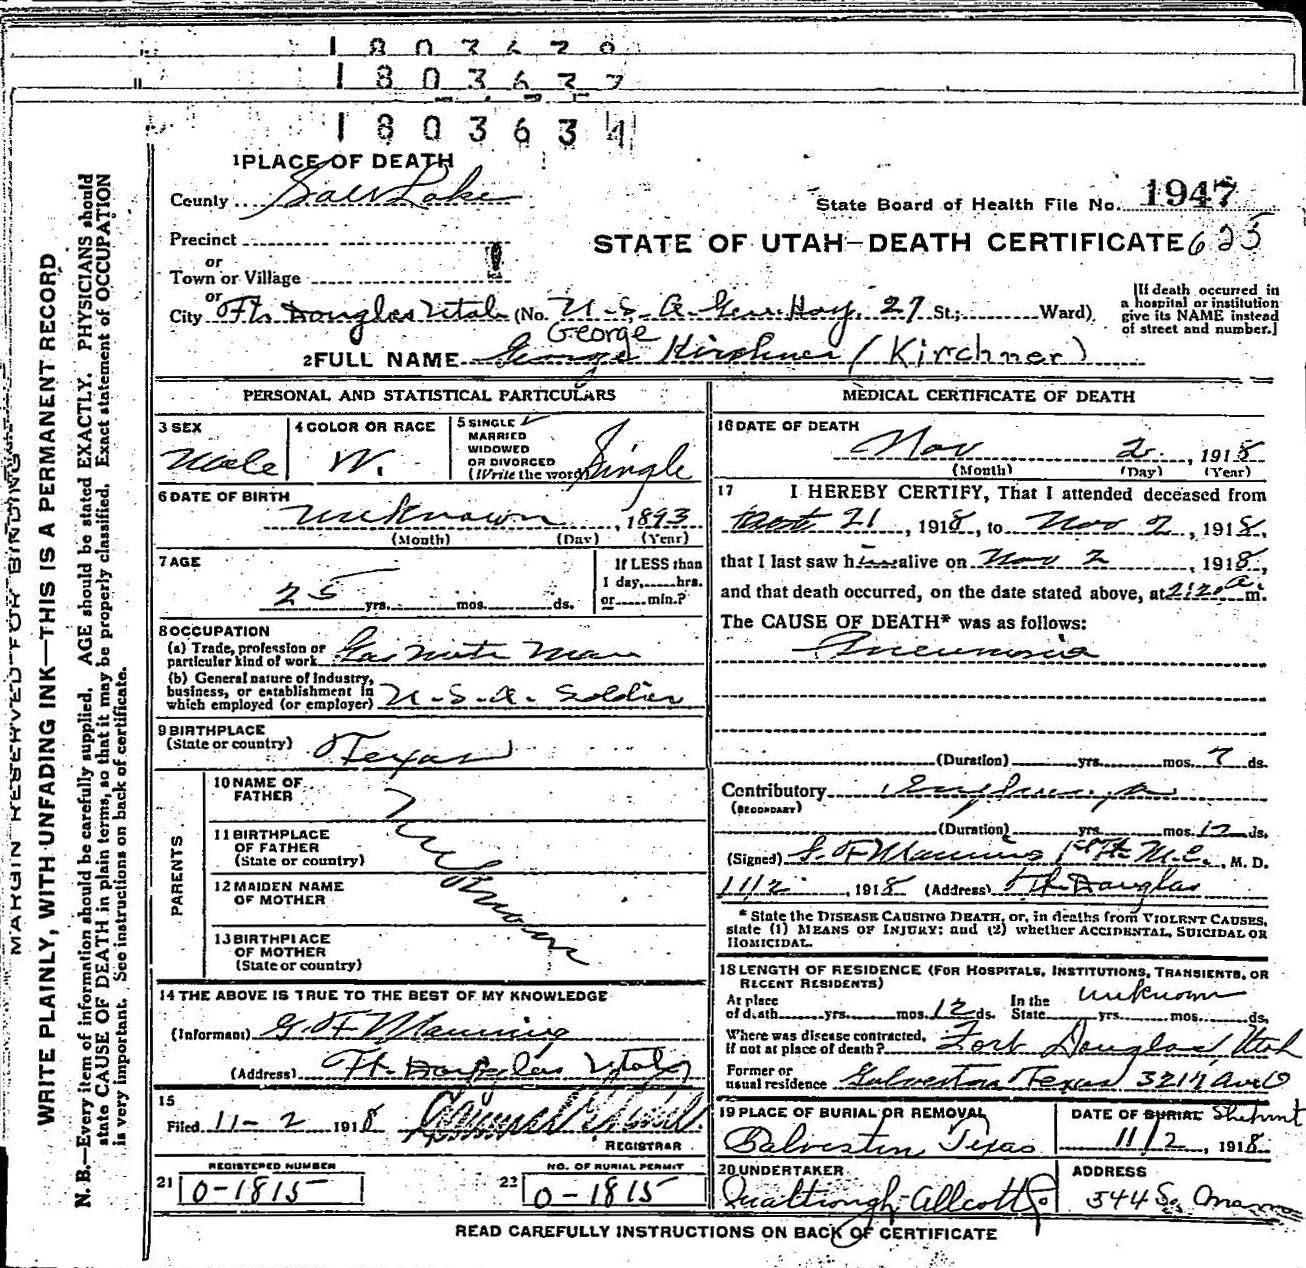 1803638
1803637
1803634
1 PLACE OF DEATH
County Salt Lake
State Board of Health File No. 1947
Precinct
or
Town or Village
STATE OF UTAH—DEATH CERTIFICATE 625
or
City Ft. Douglas Utah (No. U.S.A. Gen. Hos. 27 St.; Ward)
[If death occurred in a hospital or institution give its NAME instead of street and number.]
George
2 FULL NAME George Kirshner (Kirchner)
PERSONAL AND STATISTICAL PARTICULARS
3 SEX Male
4 COLOR OR RACE W.
5 SINGLE MARRIED WIDOWED OR DIVORCED (Write the word) Single
6 DATE OF BIRTH
unknown, 1893
(Month) (Day) (Year)
7 AGE
25 yrs. mos. ds.
If LESS than 1 day, hrs. or min.?
8 OCCUPATION
(a) Trade, profession or particular kind of work Man
(b) General nature of industry, business, or establishment in which employed (or employer) U.S.A. Soldier
9 BIRTHPLACE
(State or country) Texas
PARENTS
10 NAME OF FATHER
11 BIRTHPLACE OF FATHER (State or country)
12 MAIDEN NAME OF MOTHER
13 BIRTHPLACE OF MOTHER (State or country)
Unknown
14 THE ABOVE IS TRUE TO THE BEST OF MY KNOWLEDGE
(Informant) G. F. Manning
(Address) Ft. Douglas Utah
15
Filed 11-2 1918
REGISTRAR
REGISTERED NUMBER
21 0-1815
NO. OF BURIAL PERMIT
22 0-1815
MEDICAL CERTIFICATE OF DEATH
16 DATE OF DEATH
Nov 2, 1918
(Month) (Day) (Year)
17 I HEREBY CERTIFY, That I attended deceased from
Oct 21, 1918, to Nov 2, 1918,
that I last saw him alive on Nov 2, 1918,
and that death occurred, on the date stated above, at 2:20 a m.
The CAUSE OF DEATH* was as follows:
Pneumonia
(Duration) yrs. mos. 7 ds.
Contributory Emphyema
(SECONDARY)
(Duration) yrs. mos. 12 ds.
(Signed) G. F. Manning 1st Lt. M.C., M. D.
11/2, 1918 (Address) Ft. Douglas
* State the DISEASE CAUSING DEATH, or, in deaths from VIOLENT CAUSES, state (1) MEANS OF INJURY; and (2) whether ACCIDENTAL, SUICIDAL OR HOMICIDAL.
18 LENGTH OF RESIDENCE (FOR HOSPITALS, INSTITUTIONS, TRANSIENTS, OR RECENT RESIDENTS)
At place of death yrs. mos. 12 ds. In the State unknown yrs. mos. ds.
Where was disease contracted, if not at place of death? Fort Douglas, Utah
Former or usual residence Galveston Texas 3217 Ave O
19 PLACE OF BURIAL OR REMOVAL
Galveston Texas
DATE OF BURIAL Shipment
11/2, 1918
20 UNDERTAKER
Qualtrough-Allcott Co
ADDRESS
344 So.
READ CAREFULLY INSTRUCTIONS ON BACK OF CERTIFICATE
MARGIN RESERVED FOR BINDING
WRITE PLAINLY, WITH UNFADING INK—THIS IS A PERMANENT RECORD
N. B.—Every item of information should be carefully supplied. AGE should be stated EXACTLY. PHYSICIANS should
state CAUSE OF DEATH in plain terms, so that it may be properly classified. Exact statement of OCCUPATION
is very important. See instructions on back of certificate.